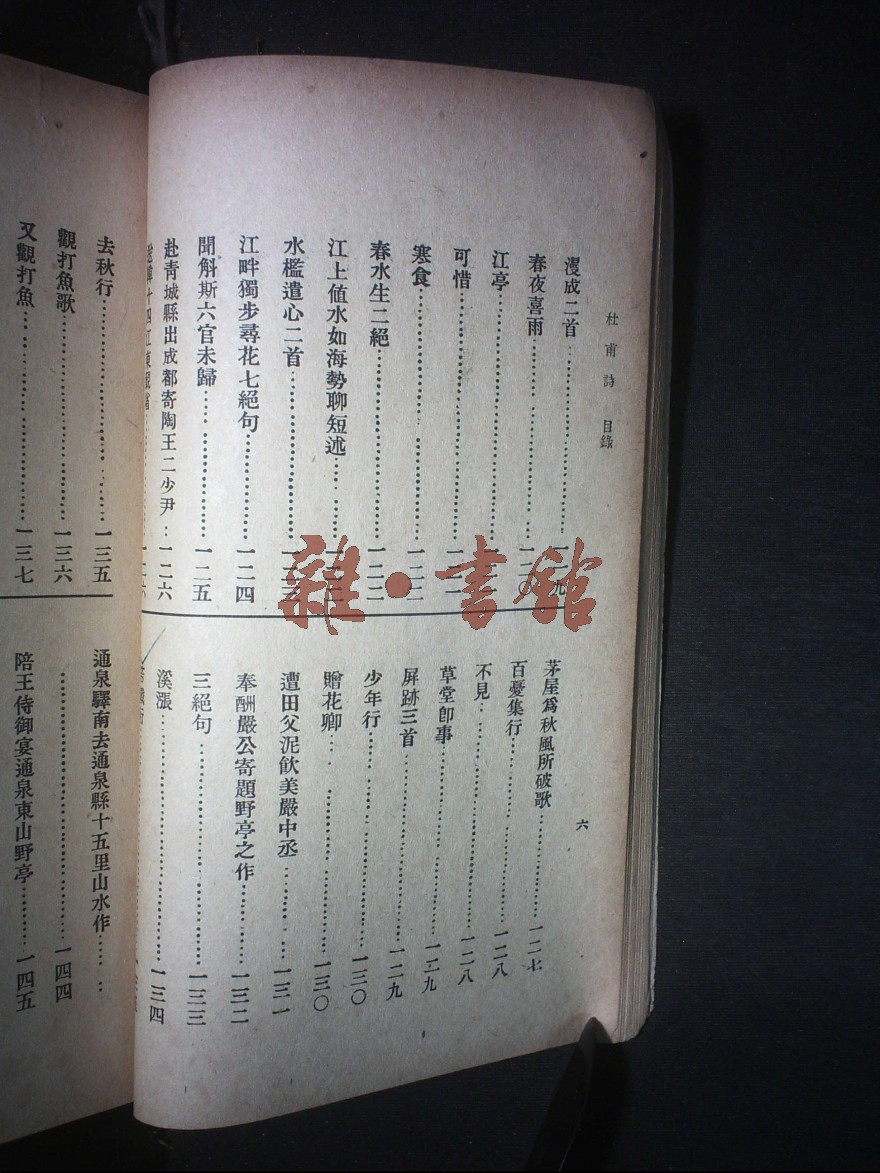 杜甫詩 目錄
六
漫成二首
春夜喜雨
江亭
可惜
寒食
春水生二絕
江上値水如海勢聊短述
水檻遣心二首
江畔獨步尋花七絕句 一二四
聞斛斯六官未歸 一二五
赴靑城縣出成都寄陶王二少尹 一二六
茅屋爲秋風所破歌 一二七
百憂集行 一二八
不見 一二八
草堂卽事 一二九
屏跡三首 一二九
少年行 一三〇
贈花卿 一三〇
遭田父泥飮美嚴中丞 一三一
奉酬嚴公寄題野亭之作 一三二
三絕句 一三三
溪漲 一三四
去秋行 一三五
觀打魚歌 一三六
又觀打魚 一三七
通泉驛南去通泉縣十五里山水作
一四四
陪王侍御宴通泉東山野亭 一四五
雜·書館